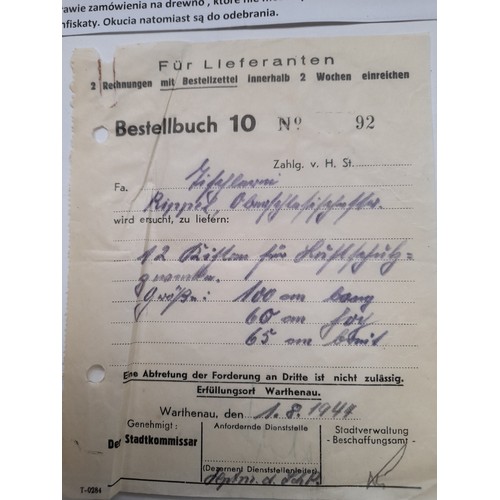 rawie zamówienia na drewno , które nie
nfiskaty. Okucia natomiast są do odebrania.
Für Lieferanten
2 Rechnungen mit Bestellzettel innerhalb 2 Wochen einreichen
Bestellbuch 10 Nº 92
Zahlg. v. H. St.
Fa. Tischlerei
Rippel, Oberschlesischestr.
wird ersucht, zu liefern:
12 Kisten für Luftschutz=
Größe: 100 cm lang
60 cm hoch
65 cm breit
Eine Abtretung der Forderung an Dritte ist nicht zulässig.
Erfüllungsort Warthenau.
Warthenau, den 1.8.1944
Genehmigt:
Der Stadtkommissar
Anfordernde Dienststelle
(Dezernent Dienststellenleiter)
Hptm. d. Sch.P.
Stadtverwaltung
- Beschaffungsamt -
T-0286